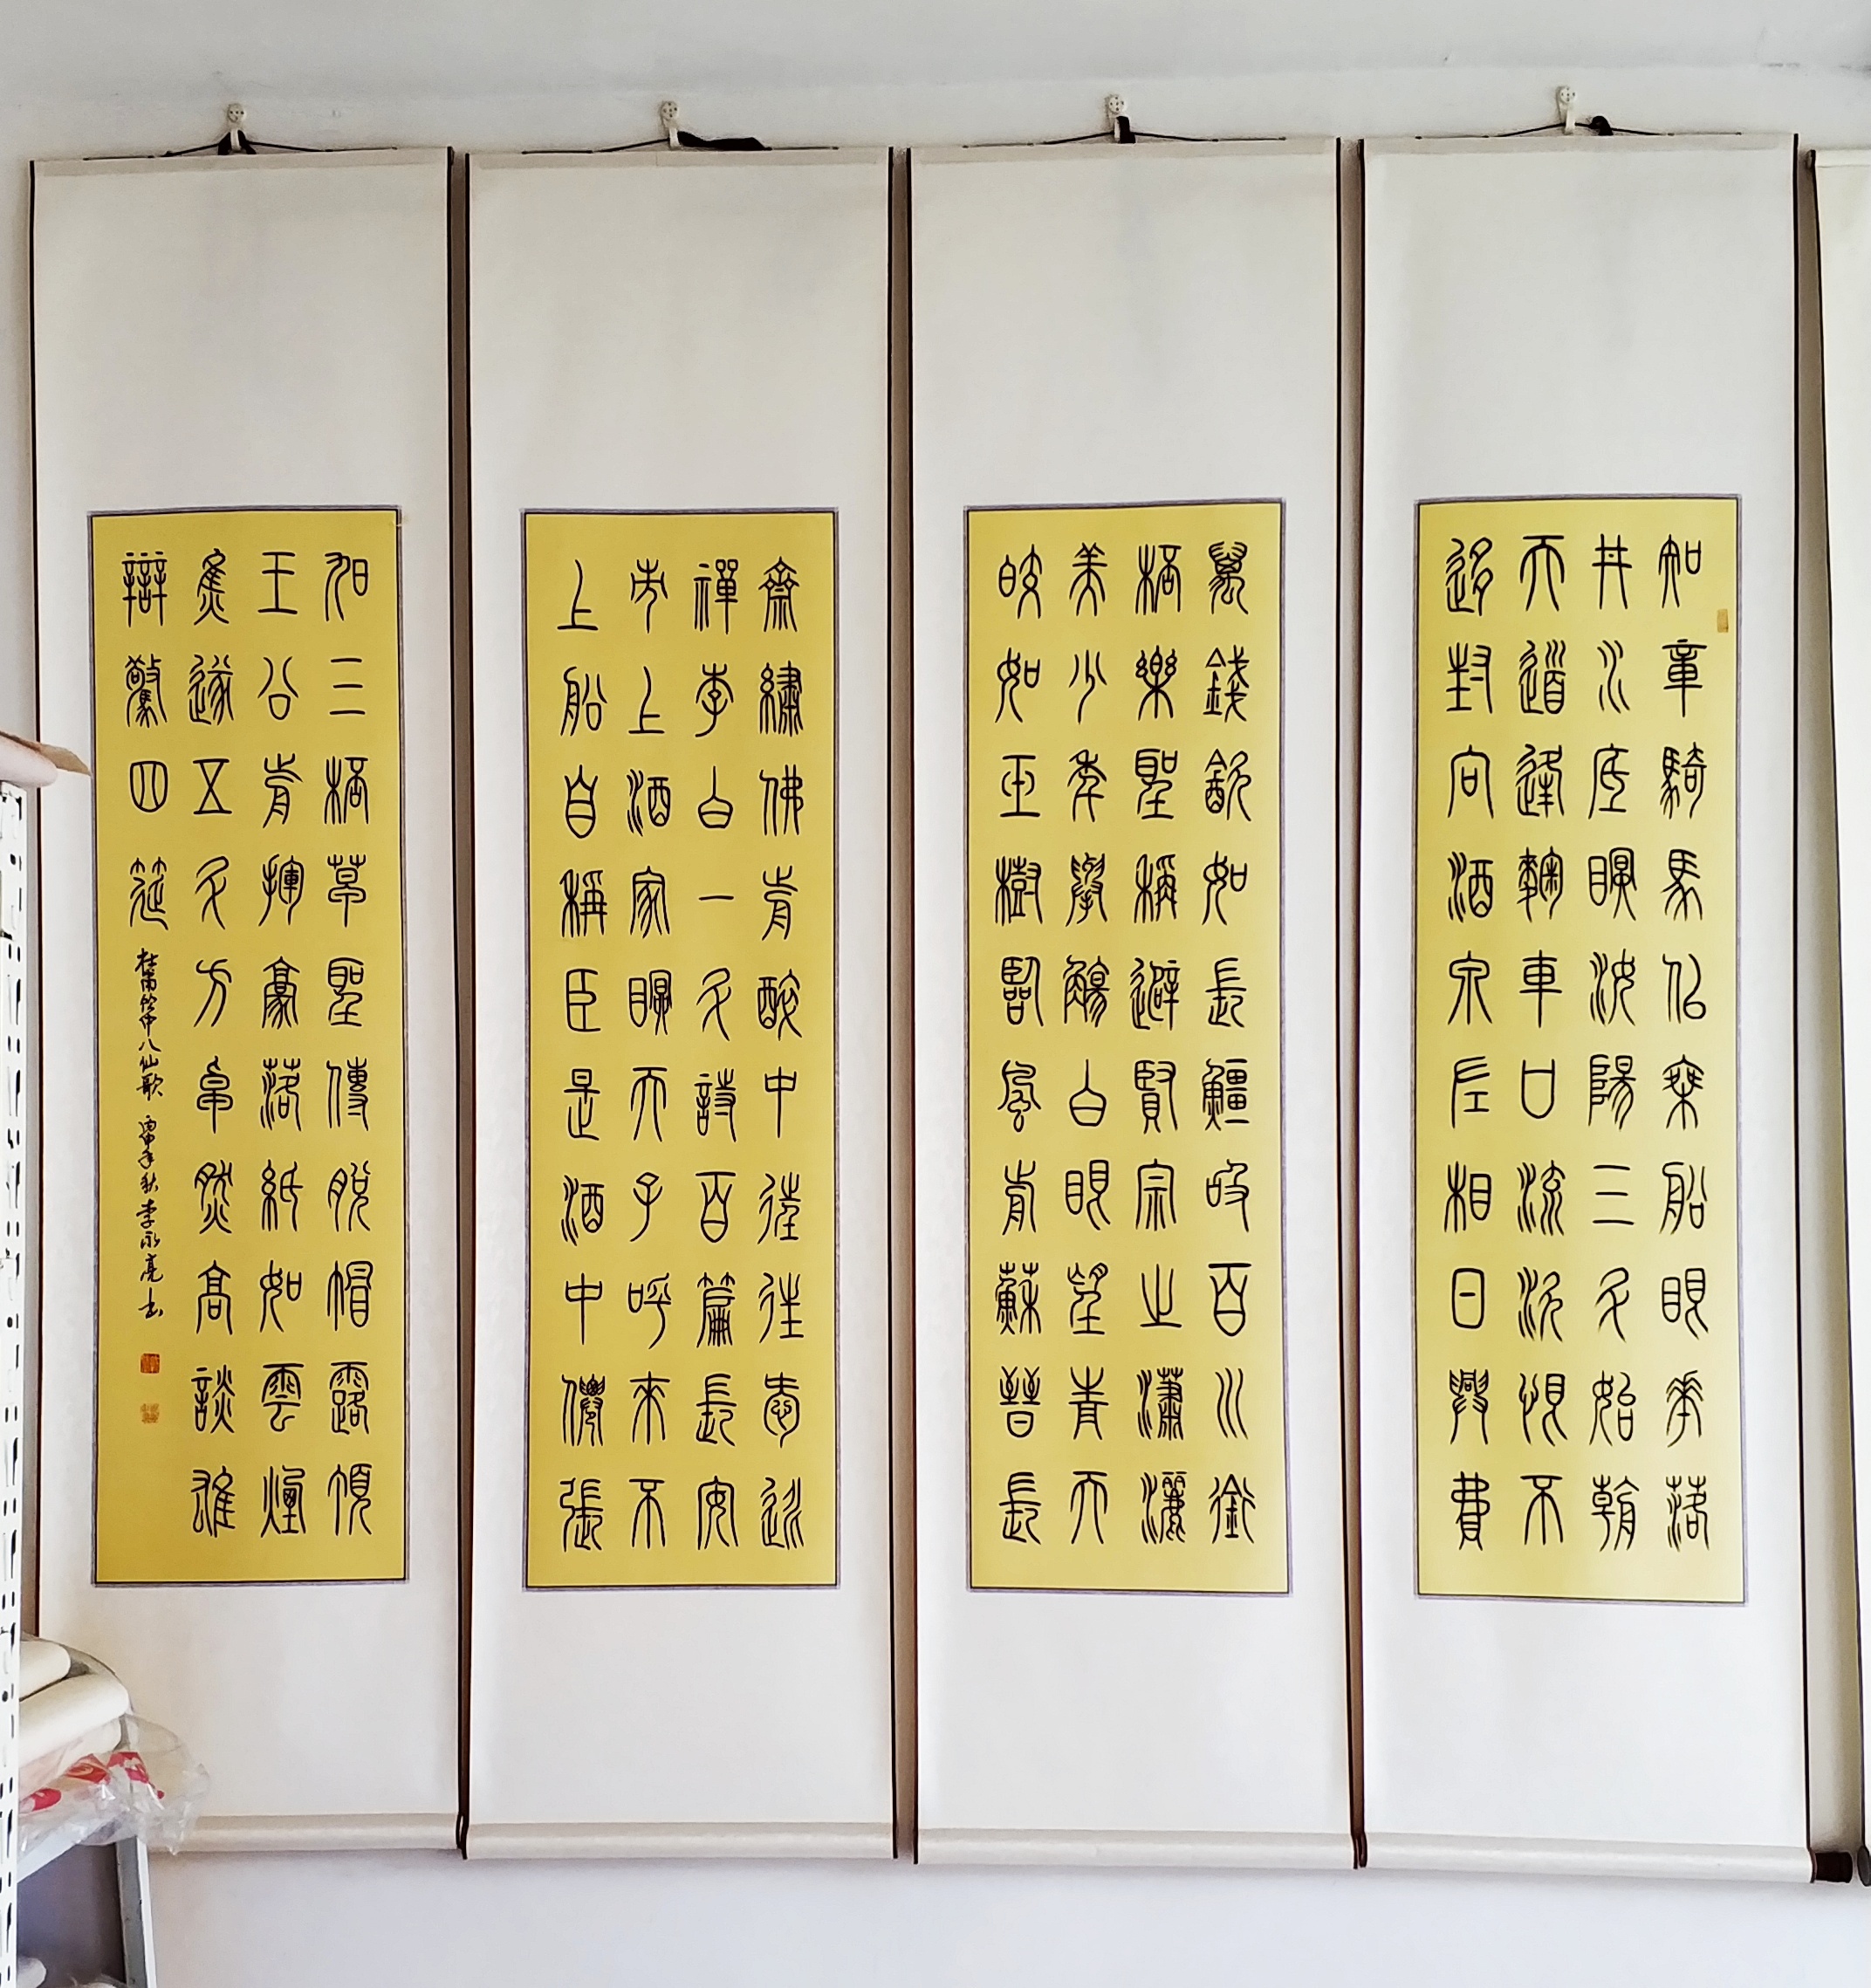 知章騎馬似乘船眼花落
井水底眠汝陽三斗始朝
天道逢麴車口流涎恨不
移封向酒泉左相日興費
萬錢飲如長鯨吸百川銜
桮樂聖稱避賢宗之瀟灑
美少年舉觴白眼望青天
皎如玉樹臨風前蘇晉長
齋繡佛前醉中往往愛逃
禪李白一斗詩百篇長安
市上酒家眠天子呼來不
上船自稱臣是酒中僊張
旭三桮草聖傳脫帽露頂
王公前揮豪落紙如雲煙
焦遂五斗方卓然高談雄
辯驚四筵
杜甫飲中八仙歌 年秋李永亮书